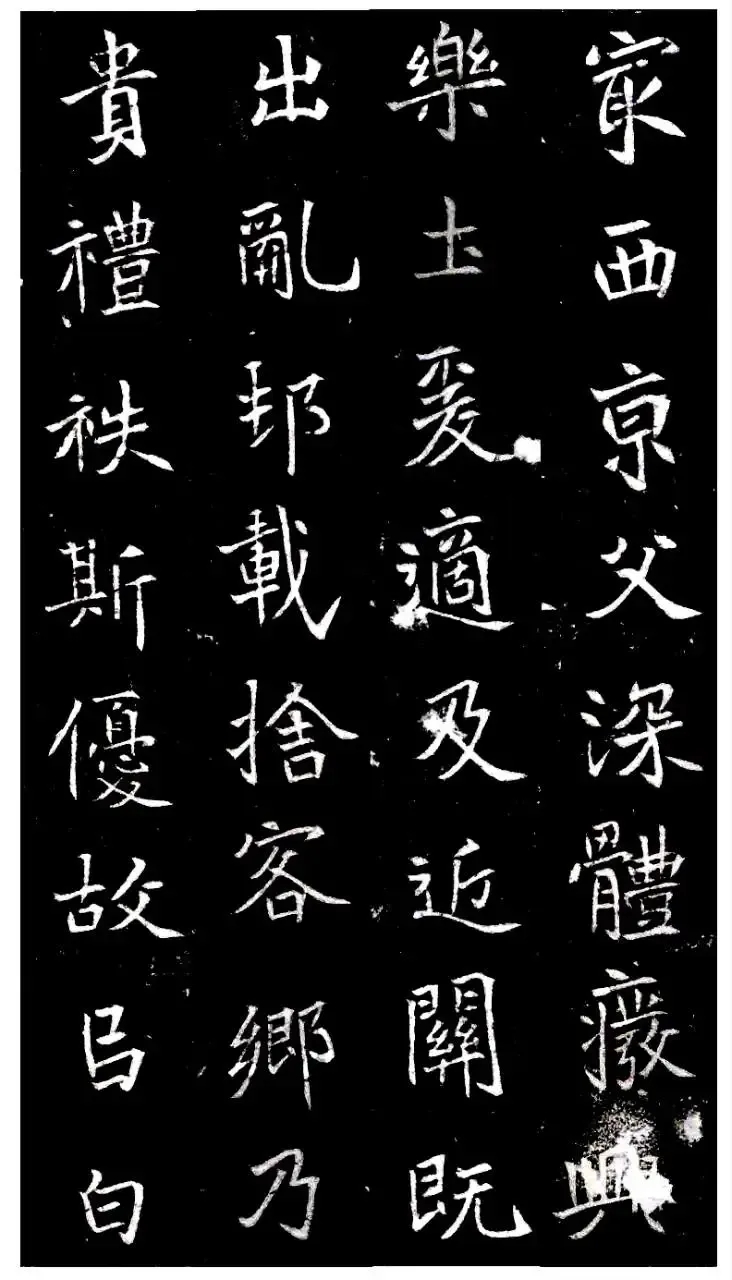 㝡西亰父深體癈興
樂圡爰適及近關既
出亂邦載捨客鄉乃
貴禮祑斯優故㠯白